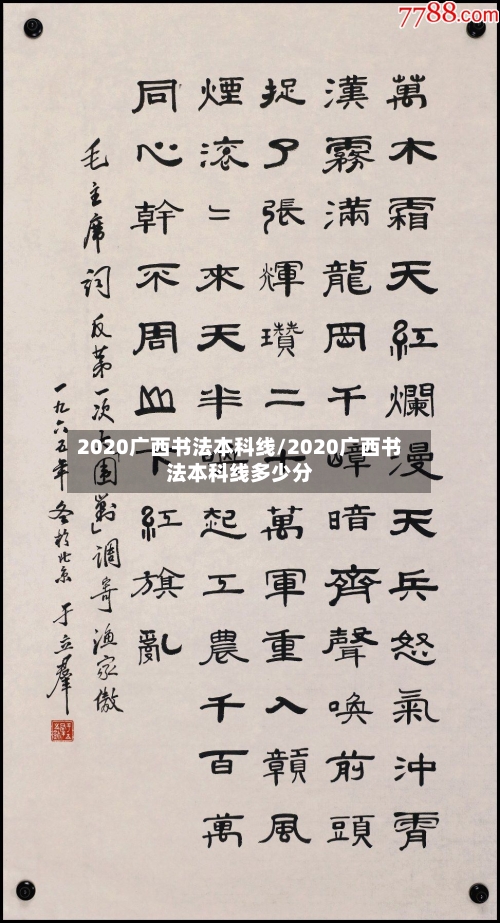 7788.com
萬木霜天紅爛漫天兵怒氣沖霄
漢霧滿龍岡千嶂暗齊聲喚前頭
捉了張輝瓚二十萬軍重入贛風
煙滾〻來天半起工農千百萬
同心幹不周山下紅旗亂
毛主席詞反第一次大圍剿」調寄漁家傲
一九六五年冬於北京 于立羣
2020广西书法本科线/2020广西书
法本科线多少分